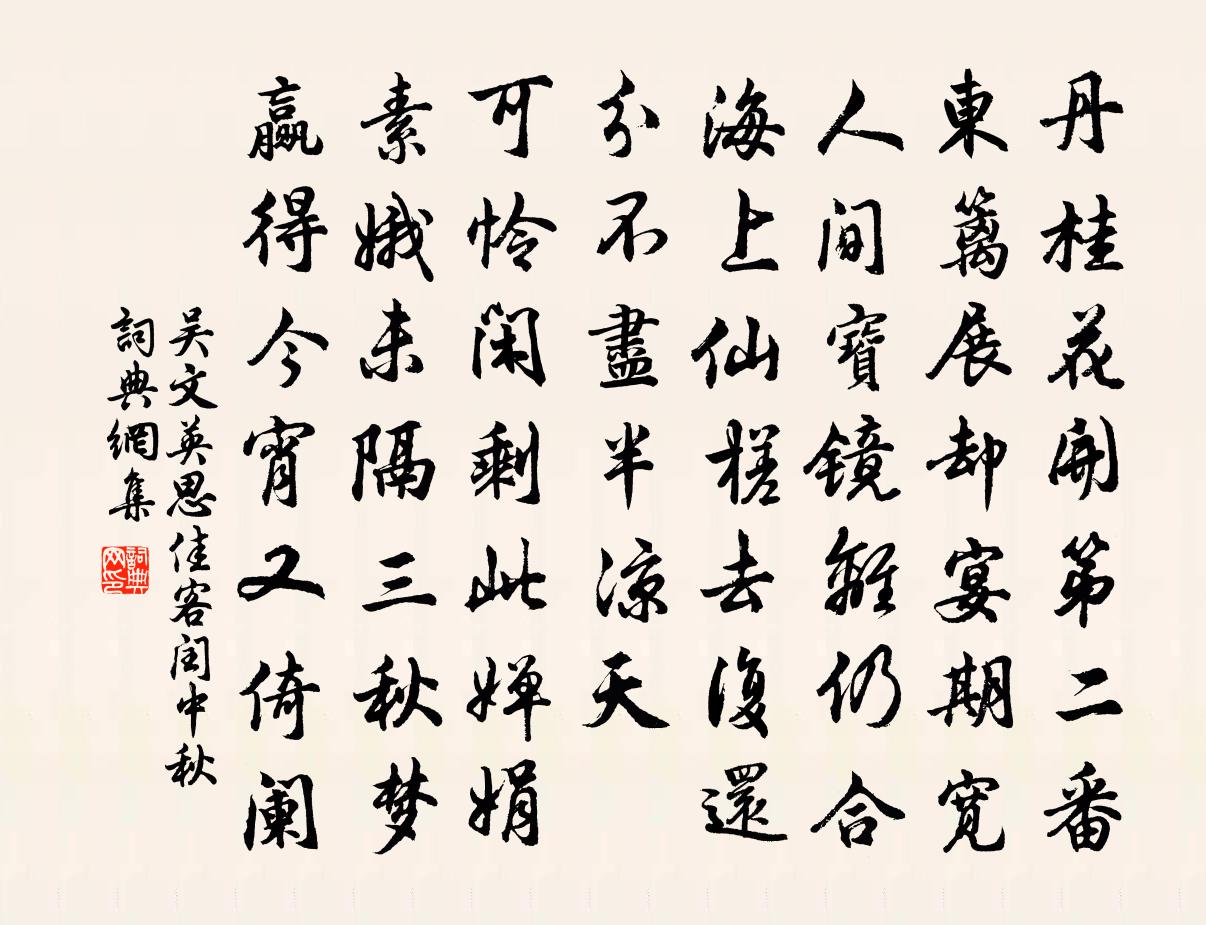 丹桂花開第二番
東籬展却宴期寬
人间寶鏡離仍合
海上仙槎去復還
分不盡半涼天
可怜闲剩此婵娟
素娥未隔三秋梦
贏得今宵又倚阑
吴文英思佳客闰中秋
詞典網集
詞典网印